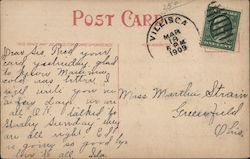 POST CARD
VILLISCA
MAR
1909
Dear Sis Recd your
card yesterday, glad
to know
cold was better. I
will write you in
a few days we are
all O.K. I talked to
Sunday they
are all right
is going so good by
Ida
Miss Martha Strain
Greenfield
Ohio